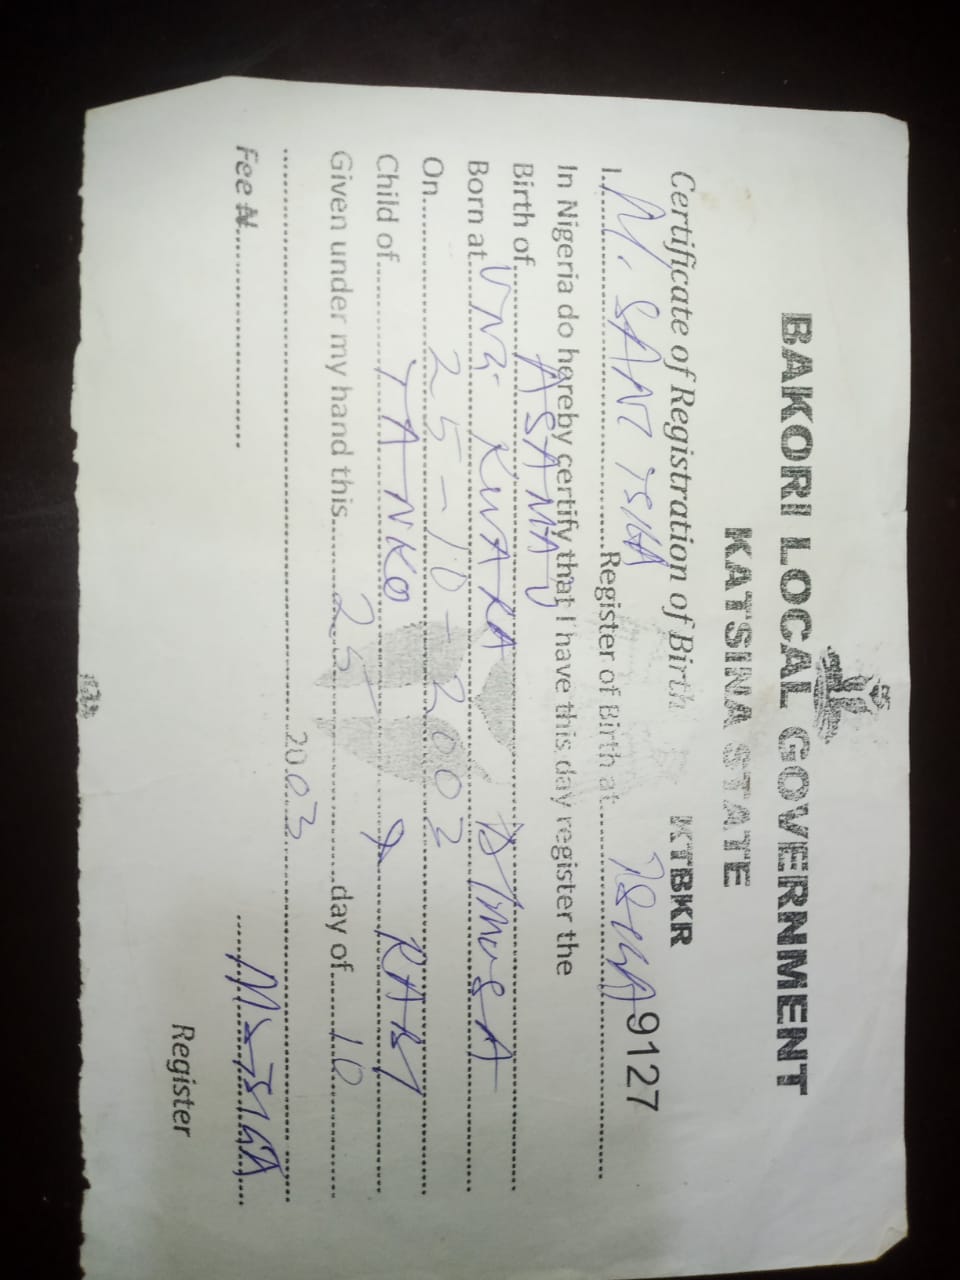 BAKORI LOCAL GOVERNMENT
KATSINA STATE
Certificate of Registration of Birth KTBKR 9127
I. M. SANI TSIGA Register of Birth at TSIGA
In Nigeria do hereby certify that I have this day register the
Birth of ASAMAU
Born at UNG. KWARA
On 25-10-2002
Child of TANKO & RABI
Given under my hand this 25 day of 10
2003
Fee N M. TSIGA
Register